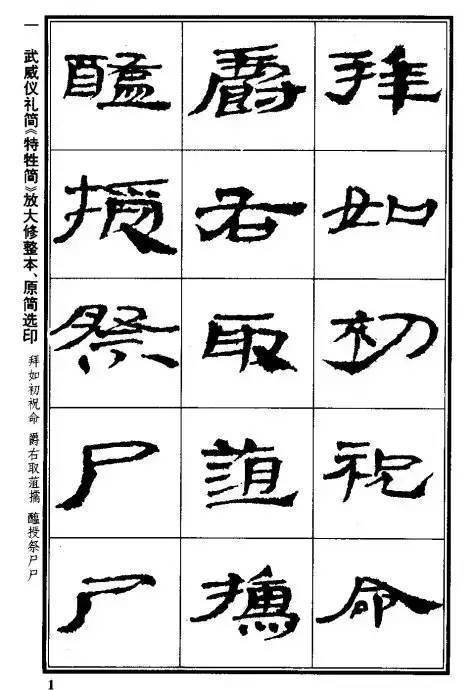 一　武威仪礼简《特牲简》放大修整本、原简选印
拜如初祝命　爵右取菹擩　醢授祭尸尸
拜如初祝命
爵右取菹擩
醢授祭尸尸
1